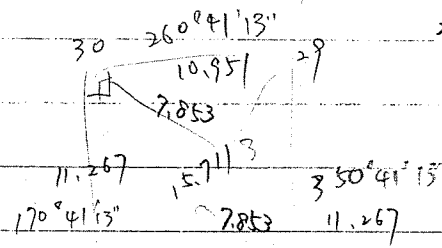 260°41'13"
30 29
10.951
7.853
11.267 15.711 3 350°41'13"
170°41'13" 7.853 11.267